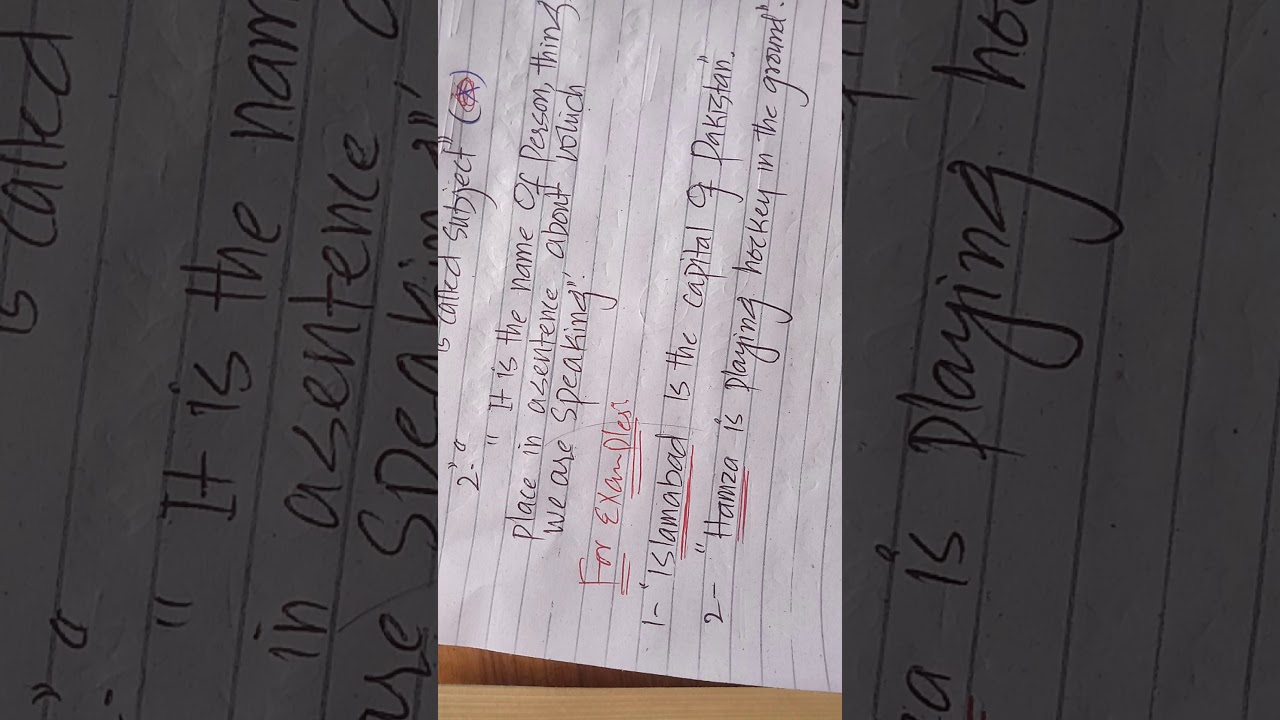 is called subject" (*)
2-"
" It is the name of person, thing,
place in asentence about which
we are speaking".
For Examples:
1- "Islamabad is the capital of Pakistan".
2- "Hamza is playing hockey in the ground".